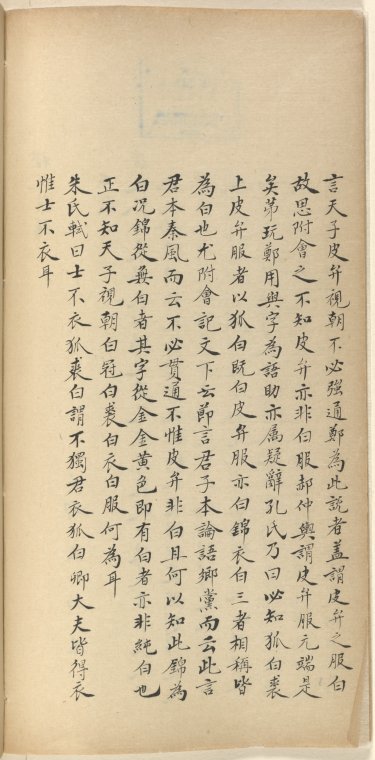 言天子皮弁視朝不必強通鄭為此說者蓋謂皮弁之服白
故思附會之不知皮弁亦非白服郝仲輿謂皮弁服元端是
矣苐玩鄭用與字為語助亦属疑辭孔氏乃曰必知狐白裘
上皮弁服者以狐白既白皮弁服亦白錦衣白三者相稱皆
為白也尤附會記文下云節言君子本論語鄉黨而云此言
君本秦風而云不必貫通不惟皮弁非白且何以知此錦為
白况錦從無白者其字從金金黄色即有白者亦非純白也
正不知天子視朝白冠白裘白衣白服何為耳
朱氏軾曰士不衣狐裘白謂不獨君衣狐白卿大夫皆得衣
惟士不衣耳